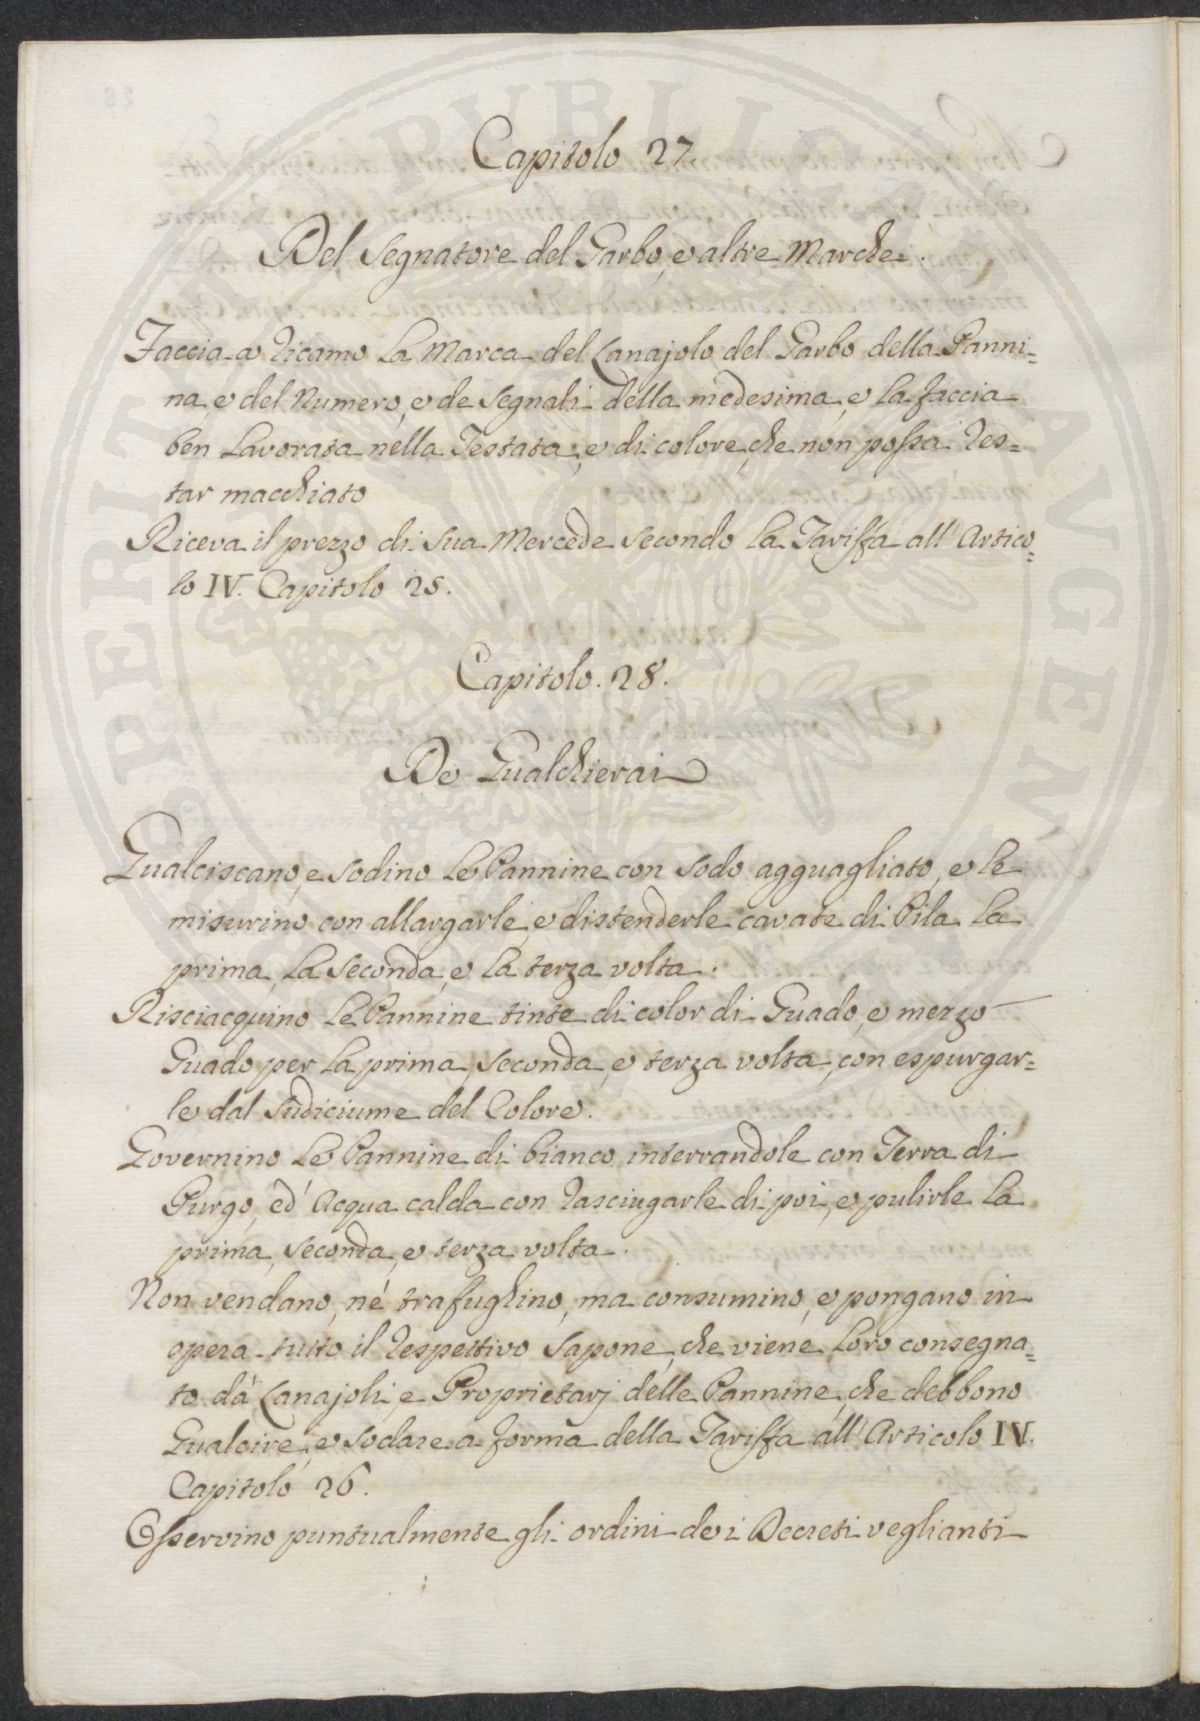 Capitolo 27
Del Segnatore del Garbo, e altre Marche.
Faccia a ricamo la Marca del Lanajolo del Garbo della Panni=
na e del Numero, e de Segnali della medesima, e la faccia
ben lavorata nella Testata, e di colore, che non possa res=
tar macchiato
Riceva il prezzo di sua Mercede secondo la Tariffa all' Artico=
lo IV. Capitolo 25.
Capitolo. 28.
De Gualchierai
Gualciscano, e sodino le Pannine con sodo agguagliato, e le
misurino con allargarle, e distenderle cavate di Pila la
prima, la seconda, e la terza volta.
Risciacquino le Pannine tinte di color di Guado, e mezzo
Guado per la prima, seconda, e terza volta, con espurgar=
le dal sudiciume del Colore.
Governino le Pannine di bianco interrandole con Terra di
Purgo, ed' Acqua calda con rasciugarle di poi, e pulirle la
prima, seconda, e terza volta.
Non vendano, né trafughino, ma consumino, e pongano in
opera tutto il respettivo Sapone, che viene loro consegna=
to dà Lanajoli, e Proprietarj delle Pannine, che debbono
Gualcire, e sodare a forma della Tariffa all' Articolo IV.
Capitolo 26.
Osservino puntualmente gli ordini de i Decreti veglianti